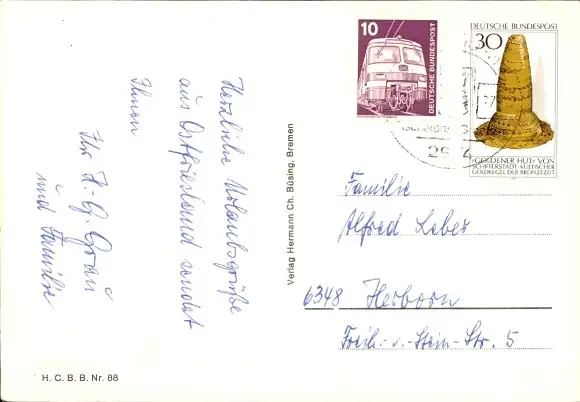 Herzliche Urlaubsgrüße
aus Ostfriesland sendet
Ihnen
Ihr H.-G. Groß
und Familie
H. C. B. B. Nr. 88
Verlag Hermann Ch. Büsing, Bremen
10
DEUTSCHE BUNDESPOST
DEUTSCHE BUNDESPOST
30
»GOLDENER HUT« VON
SCHIFFERSTADT·KULTISCHER
GOLDKEGEL DER BRONZEZEIT
Familie
Alfred Leber
6348 Herborn
Freih.-v.-Stein-Str. 5